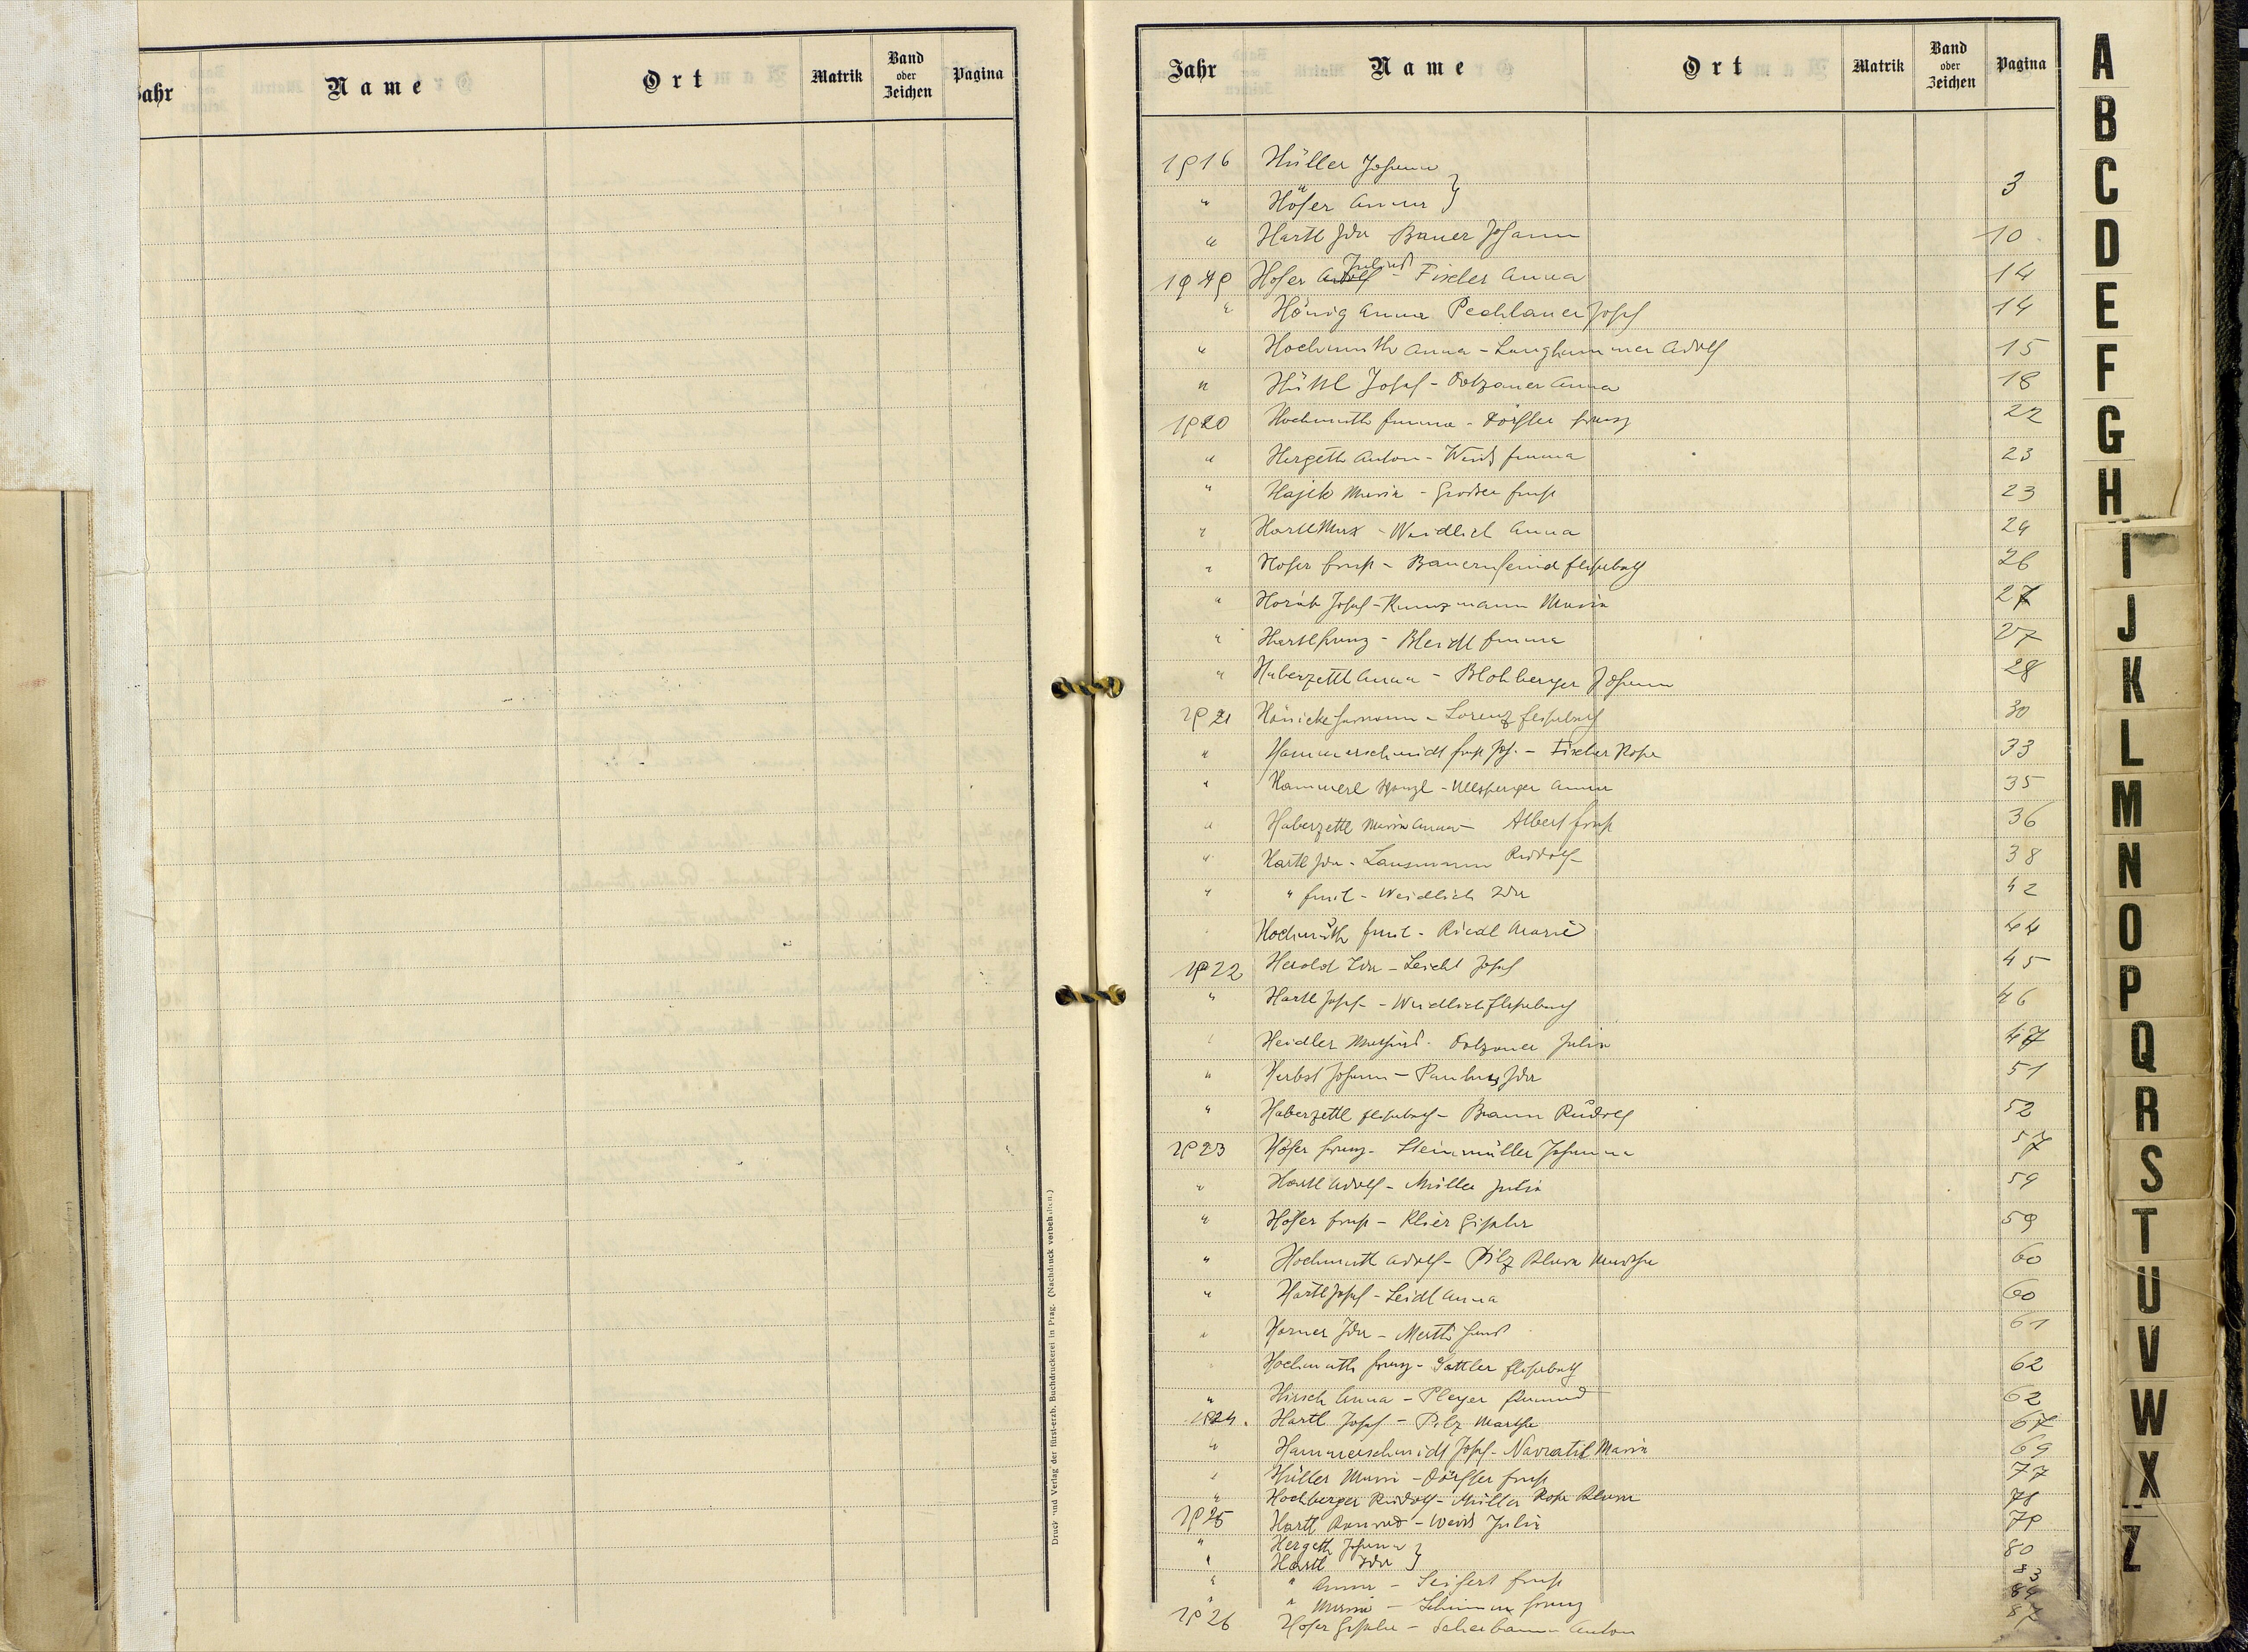 Jahr Name Ort Matrik Band oder Zeichen Pagina
Druck und Verlag der fürst-erzb. Buchdruckerei in Prag. (Nachdruck verboten.)
Jahr Name Ort Matrik Band oder Zeichen Pagina
1916 Hüller Johann
" Höfer Anna } 3
" Hartl Ida Bauer Johann 10
1919 Hofer Julius - Fischer Anna 14
" Hönig Anna Pechlauer Josef 14
" Hochmuth Anna - Langhammer Adolf 15
" Hüttl Josef - Dotzauer Anna 18
1920 Hochmuth Emma - Dörfler Franz 22
" Hergeth Anton - Weiß Emma 23
" Hajek Maria - Ernst 23
" Hartl Max - Weidlich Anna 24
" Hofer Ernst - Bauernfeind Elisabeth 26
" Josef - Kunzmann Maria 27
" Hartl Franz - Bleidl Emma 27
" Haberzettl Anna - Blohberger Johann 28
1921 Hänicke Hermann - Lorenz Elisabeth 30
" Hammerschmidt Ernst Jos. - Fischer Rosa 33
" Hammerl - Ullsperger Anna 35
" Haberzettl Maria Anna - Albert Ernst 36
" Hartl Ida - Lausmann Rudolf 38
" " Ernst - Weidlich Ida 42
Hochmuth Ernst - Riedl Marie 44
1922 Herold Ida - Leicht Josef 45
" Hartl Josef - Weidlich Elisabeth 46
" Heidler Mathias - Dotzauer Julia 47
" Herbst Johann - Paulus Ida 51
" Haberzettl Elisabeth - Braun Rudolf 52
1923 Höfer Franz - Steinmüller Johanna 57
" Hartl Adolf - Müller Julia 59
" Höfer Ernst - Klier Gisela 59
" Hochmuth Adolf - Pilz Klara Martha 60
" Hartl Josef - Leidl Anna 60
" Horner Ida - Merth Hans 61
" Hochmuth Franz - Sattler Elisabeth 62
" Hirsch Anna - Pleyer Edmund 62
1924. Hartl Josef - Pilz Martha 67
" Hammerschmidt Josef - Navratil Maria 69
" Hüller Maria - Dörfler Ernst 77
" Hochberger Rudolf - Müller Rosa Klara 78
1925 Hartl Konrad - Weiß Julia 79
" Hergeth Johann
" Hartl Ida } 80
" " Anna - Seifert Ernst 83
" " Maria - Franz 84
1926 Hofer Gisela - Scherbaum Anton 87
A
B
C
D
E
F
G
H
I
J
K
L
M
N
O
P
Q
R
S
T
U
V
W
X
Z